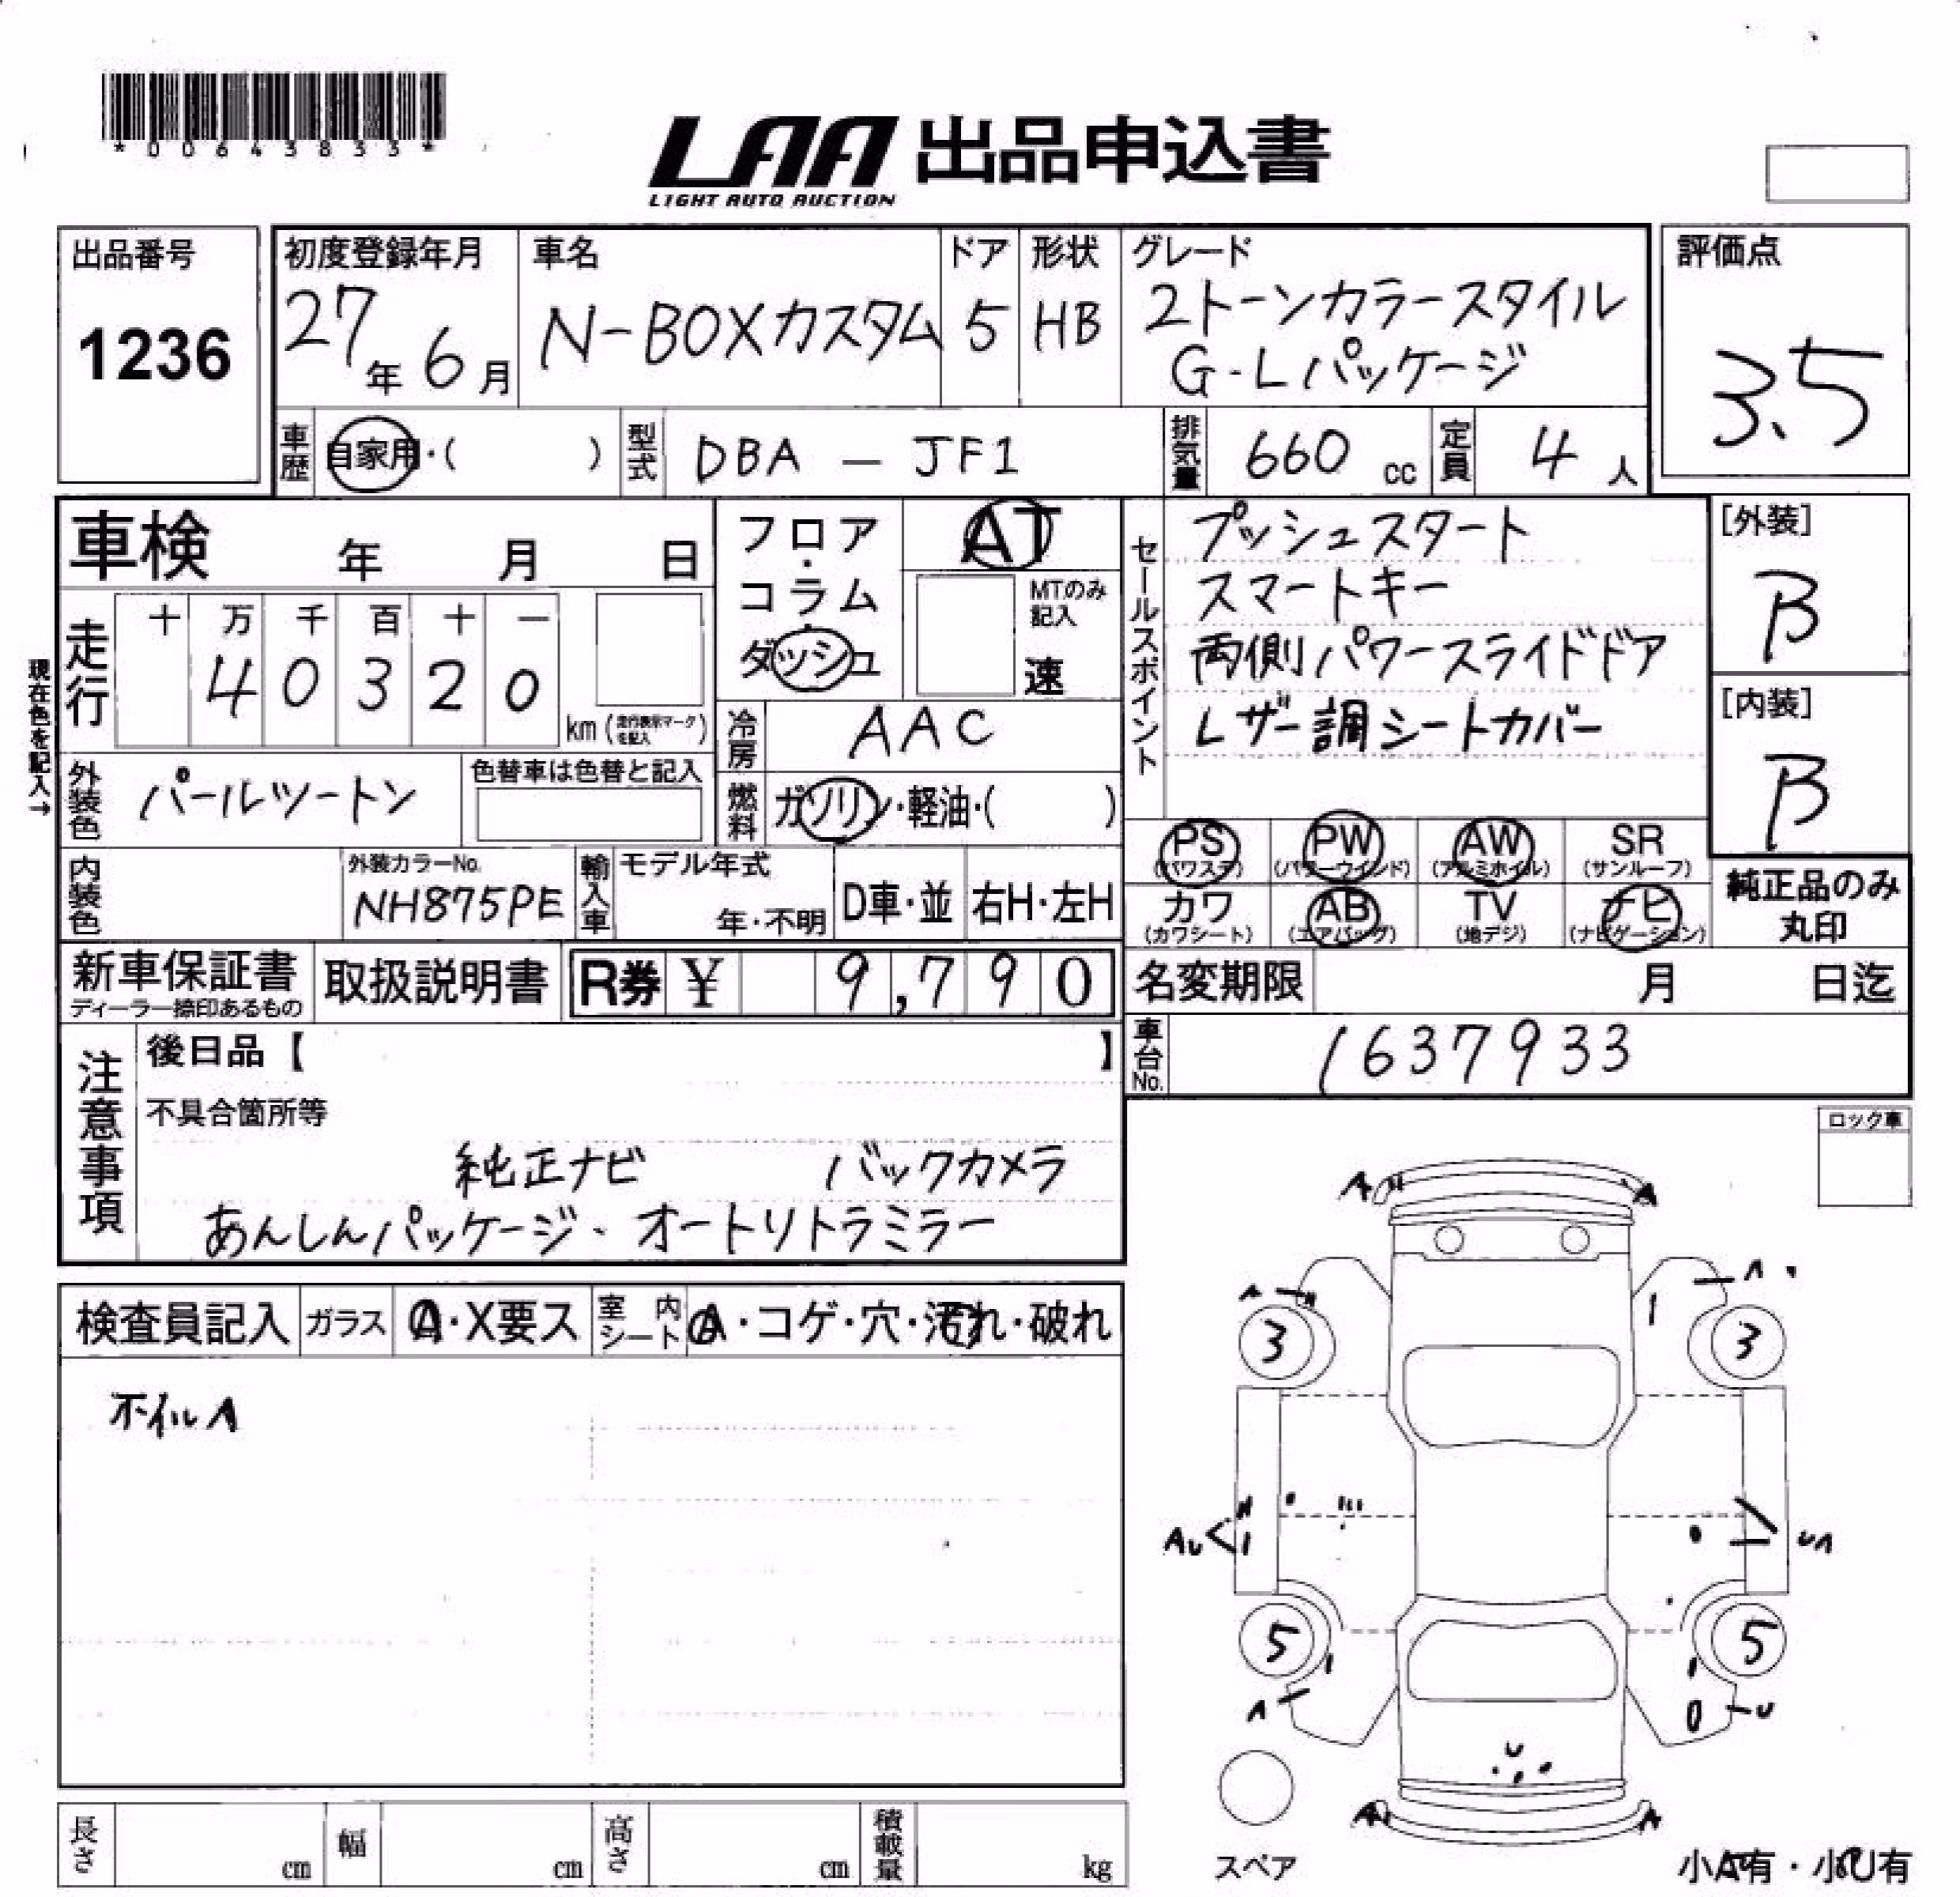 *00643833*
LAA 出品申込書
LIGHT AUTO AUCTION
出品番号
1236
初度登録年月
27年6月
車名
N-BOXカスタム
ドア
5
形状
HB
グレード
2トーンカラースタイル
G・Lパッケージ
評価点
3.5
車歴
自家用・( )
型式
DBA — JF1
排気量
660 cc
定員
4人
車検 年 月 日
フロア・
コラム・
ダッシュ
AT
MTのみ
記入
速
セールスポイント
プッシュスタート
スマートキー
両側パワースライドドア
Lザー調シートカバー
[外装]
B
[内装]
B
現在色を記入→
走行
十 万 千 百 十 一
4 0 3 2 0
km(走行表示マークを記入)
冷房
AAC
外装色
パールツートン
色替車は色替と記入
燃料
ガソリン・軽油・( )
PS PW AW SR
(パワステ) (パワーウインド) (アルミホイル) (サンルーフ)
カワ AB TV ナビ
(カワシート) (エアバッグ) (地デジ) (ナビゲーション)
純正品のみ
丸印
内装色
外装カラーNo.
NH875PE
輸入車
モデル年式
年・不明
D車・並
右H・左H
新車保証書
ディーラー捺印あるもの
取扱説明書
R券 ¥ 9,790
名変期限 月 日迄
車台No.
1637933
注意事項
後日品【 】
不具合箇所等
純正ナビ バックカメラ
あんしんパッケージ、オートリトラミラー
ロック車
検査員記入
ガラス
A・X要ス
室内シート
A・コゲ・穴・汚れ・破れ
ホイルA
A A
A A
3 3
AU UA
5 5
A U
U
A A
スペア
小A有・小U有
長さ cm
幅 cm
高さ cm
積載量 kg